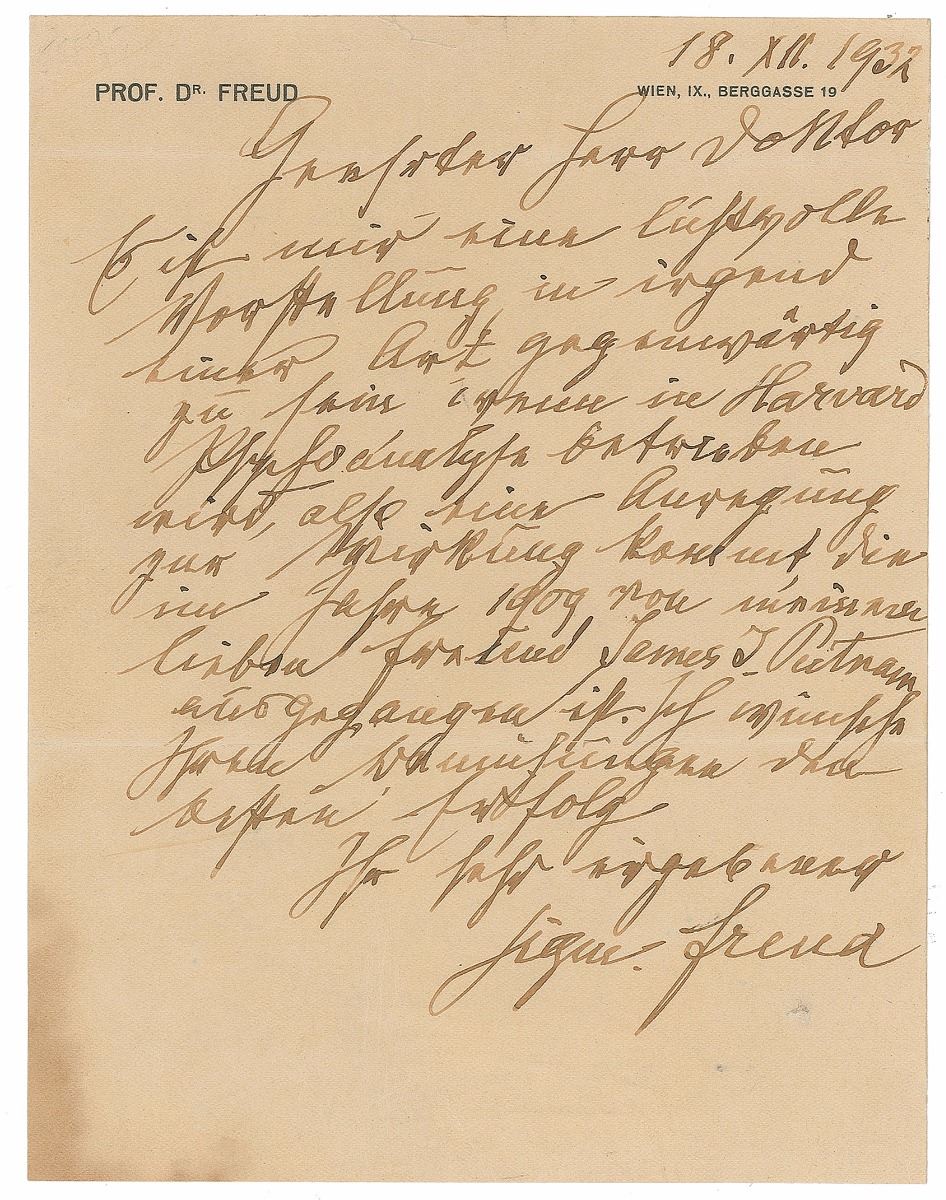 18. XII. 1932
PROF. DR. FREUD
WIEN, IX., BERGGASSE 19
Geehrter Herr Doktor
Es ist mir eine lustvolle
Vorstellung, in irgend
einer Art gegenwärtig
zu sein wenn in Harvard
Psychoanalyse betrieben
wird, also eine Anregung
zur Wirkung kommt die
im Jahre 1909 von meinem
lieben Freund James J. Putnam
ausgegangen ist. Ich wünsche
Ihren Bemühungen den
besten Erfolg
Ihr sehr ergebener
Sigm. Freud